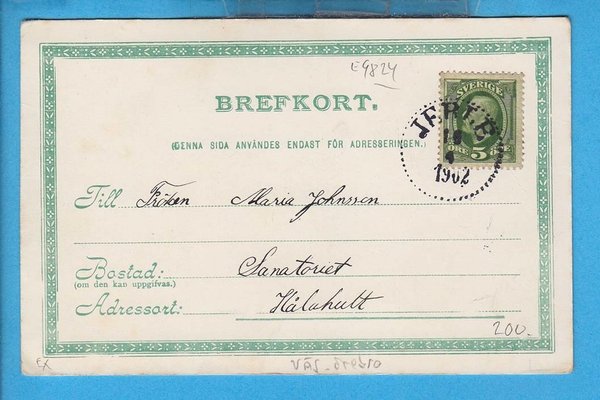 E9824
BREFKORT.
SVERIGE
(DENNA SIDA ANVÄNDES ENDAST FÖR ADRESSERINGEN.)
JERLE
18
4
1902
ÖRE 5 ÖRE
Till Fröken Maria Johnsson
Bostad: Sanatoriet
(om den kan uppgifvas.)
Adressort: Hålahult
200.-
EX
VÄS-örebro